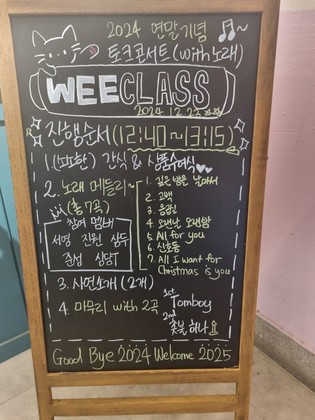 2024 연말기념
토크콘서트(with노래)
WEECLASS
2024.12.23
진행순서(12:40~13:15)
1. 간식 & 상품수여식
2. 노래 메들리~
(총 7곡)
참여 멤버
서영 진원 상두
준성 상담T
1. 깊은 밤을 날아서
2. 고백
3. 응원
4. 오랜날 오랜밤
5. All for you
6. 신호등
7. All I want for
Christmas is you
3. 사연소개 (2개)
4. 마무리 with 2곡
1st Tomboy
2nd 촛불하나
Good Bye 2024 Welcome 2025